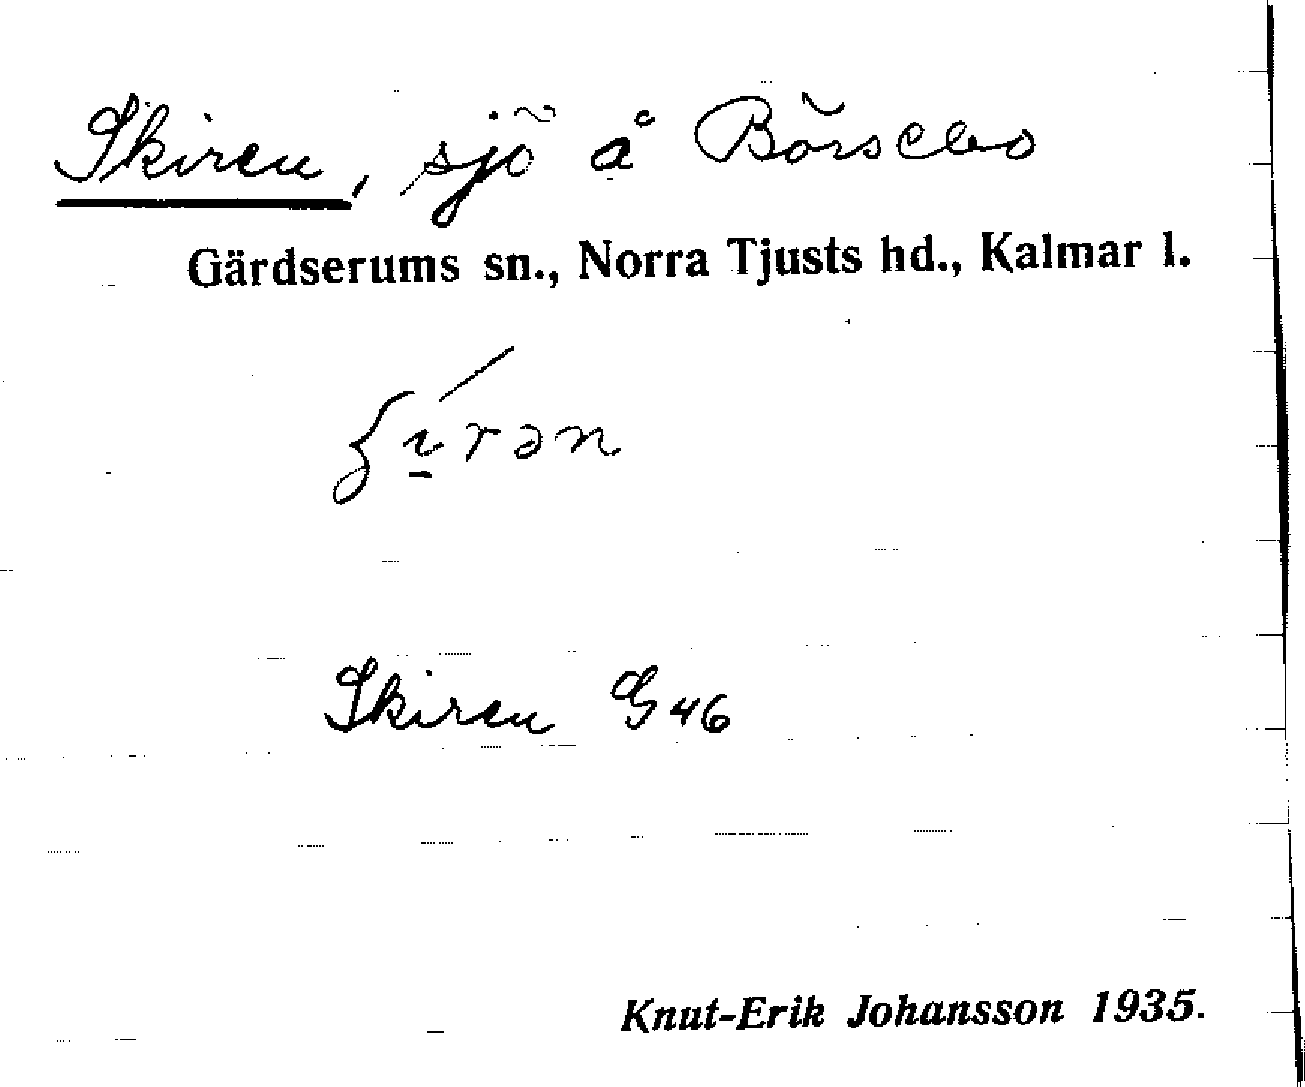 Skiren, sjö å Börsebo
Gärdserums sn., Norra Tjusts hd., Kalmar l.
Skiren G 46
Knut-Erik Johansson 1935.